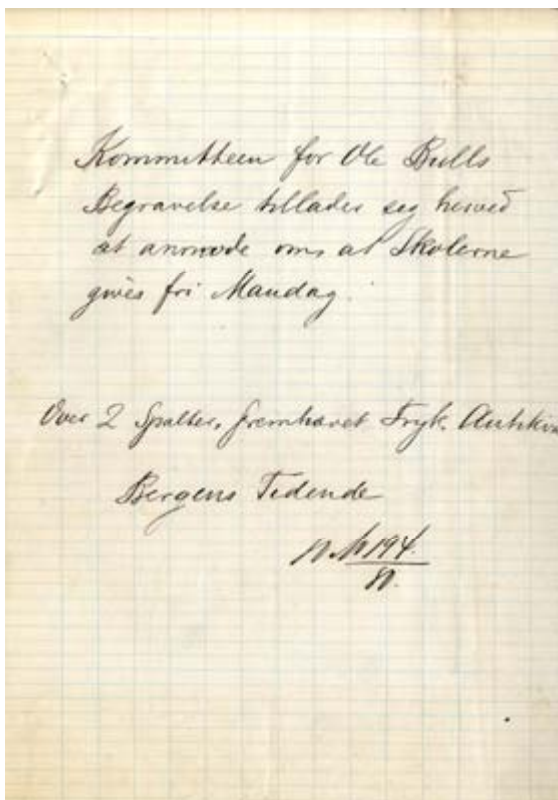 Kommitteen for Ole Bulls
Begravelse tillader sig herved
at anmode om, at Skolerne
gives fri Mandag.
Over 2 Spalter, fremhævet Tryk.
Bergens Tidende
194
80.